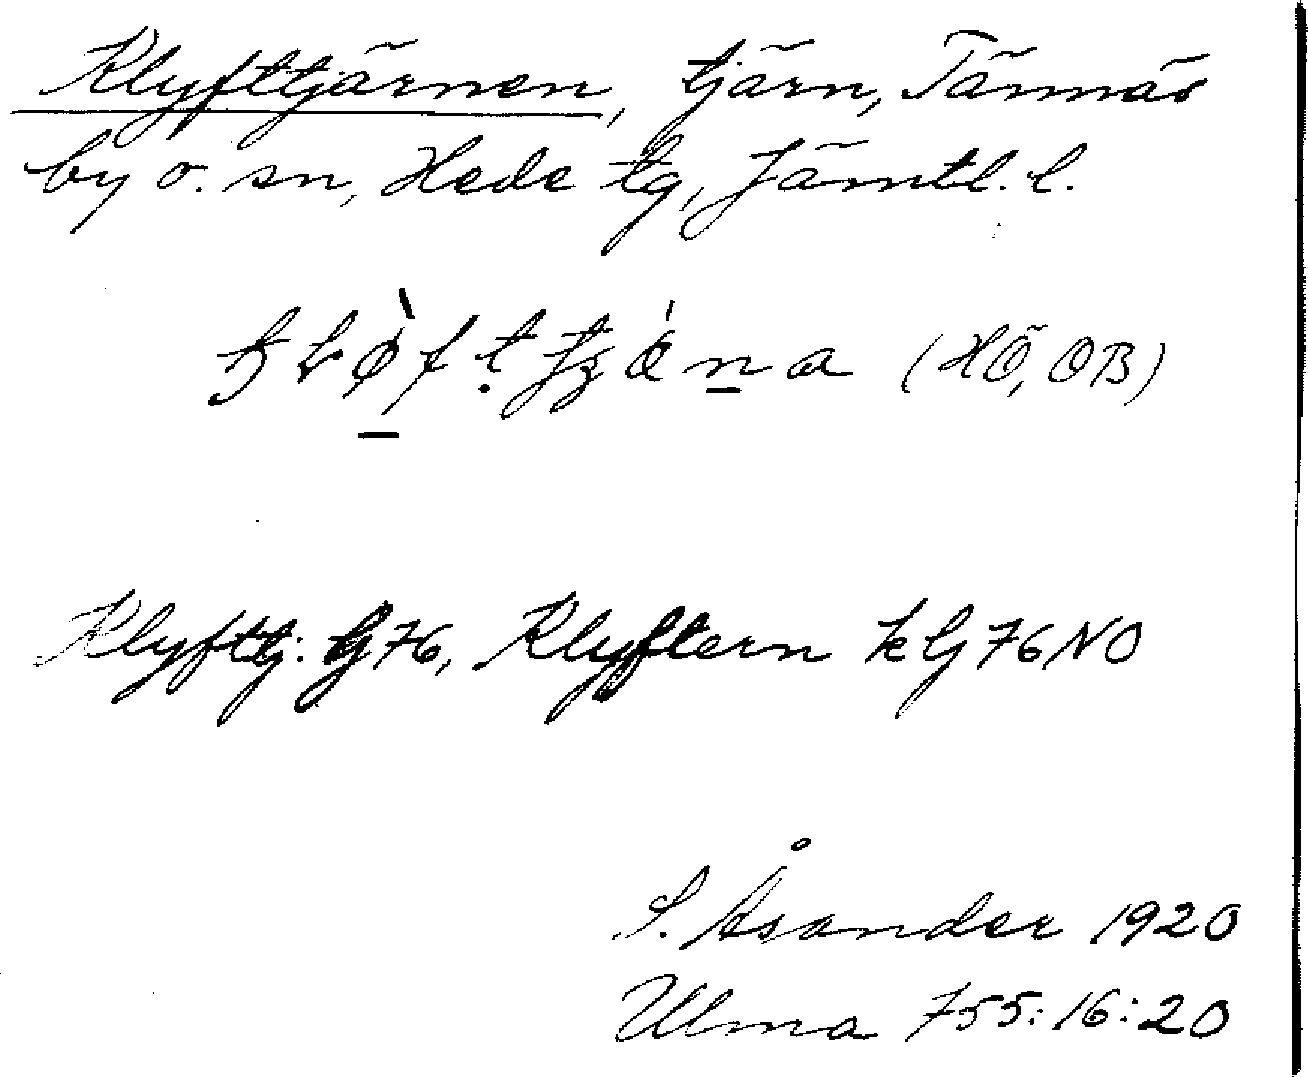 Klyfttjärnen, tjärn, Tännäs
by o. sn, Hede tg, Jämtl. l.
(HÖ, OB)
Klyfttj: G76, Klyftern kG76NO
S. Åsander 1920
Ulma 755:16:20